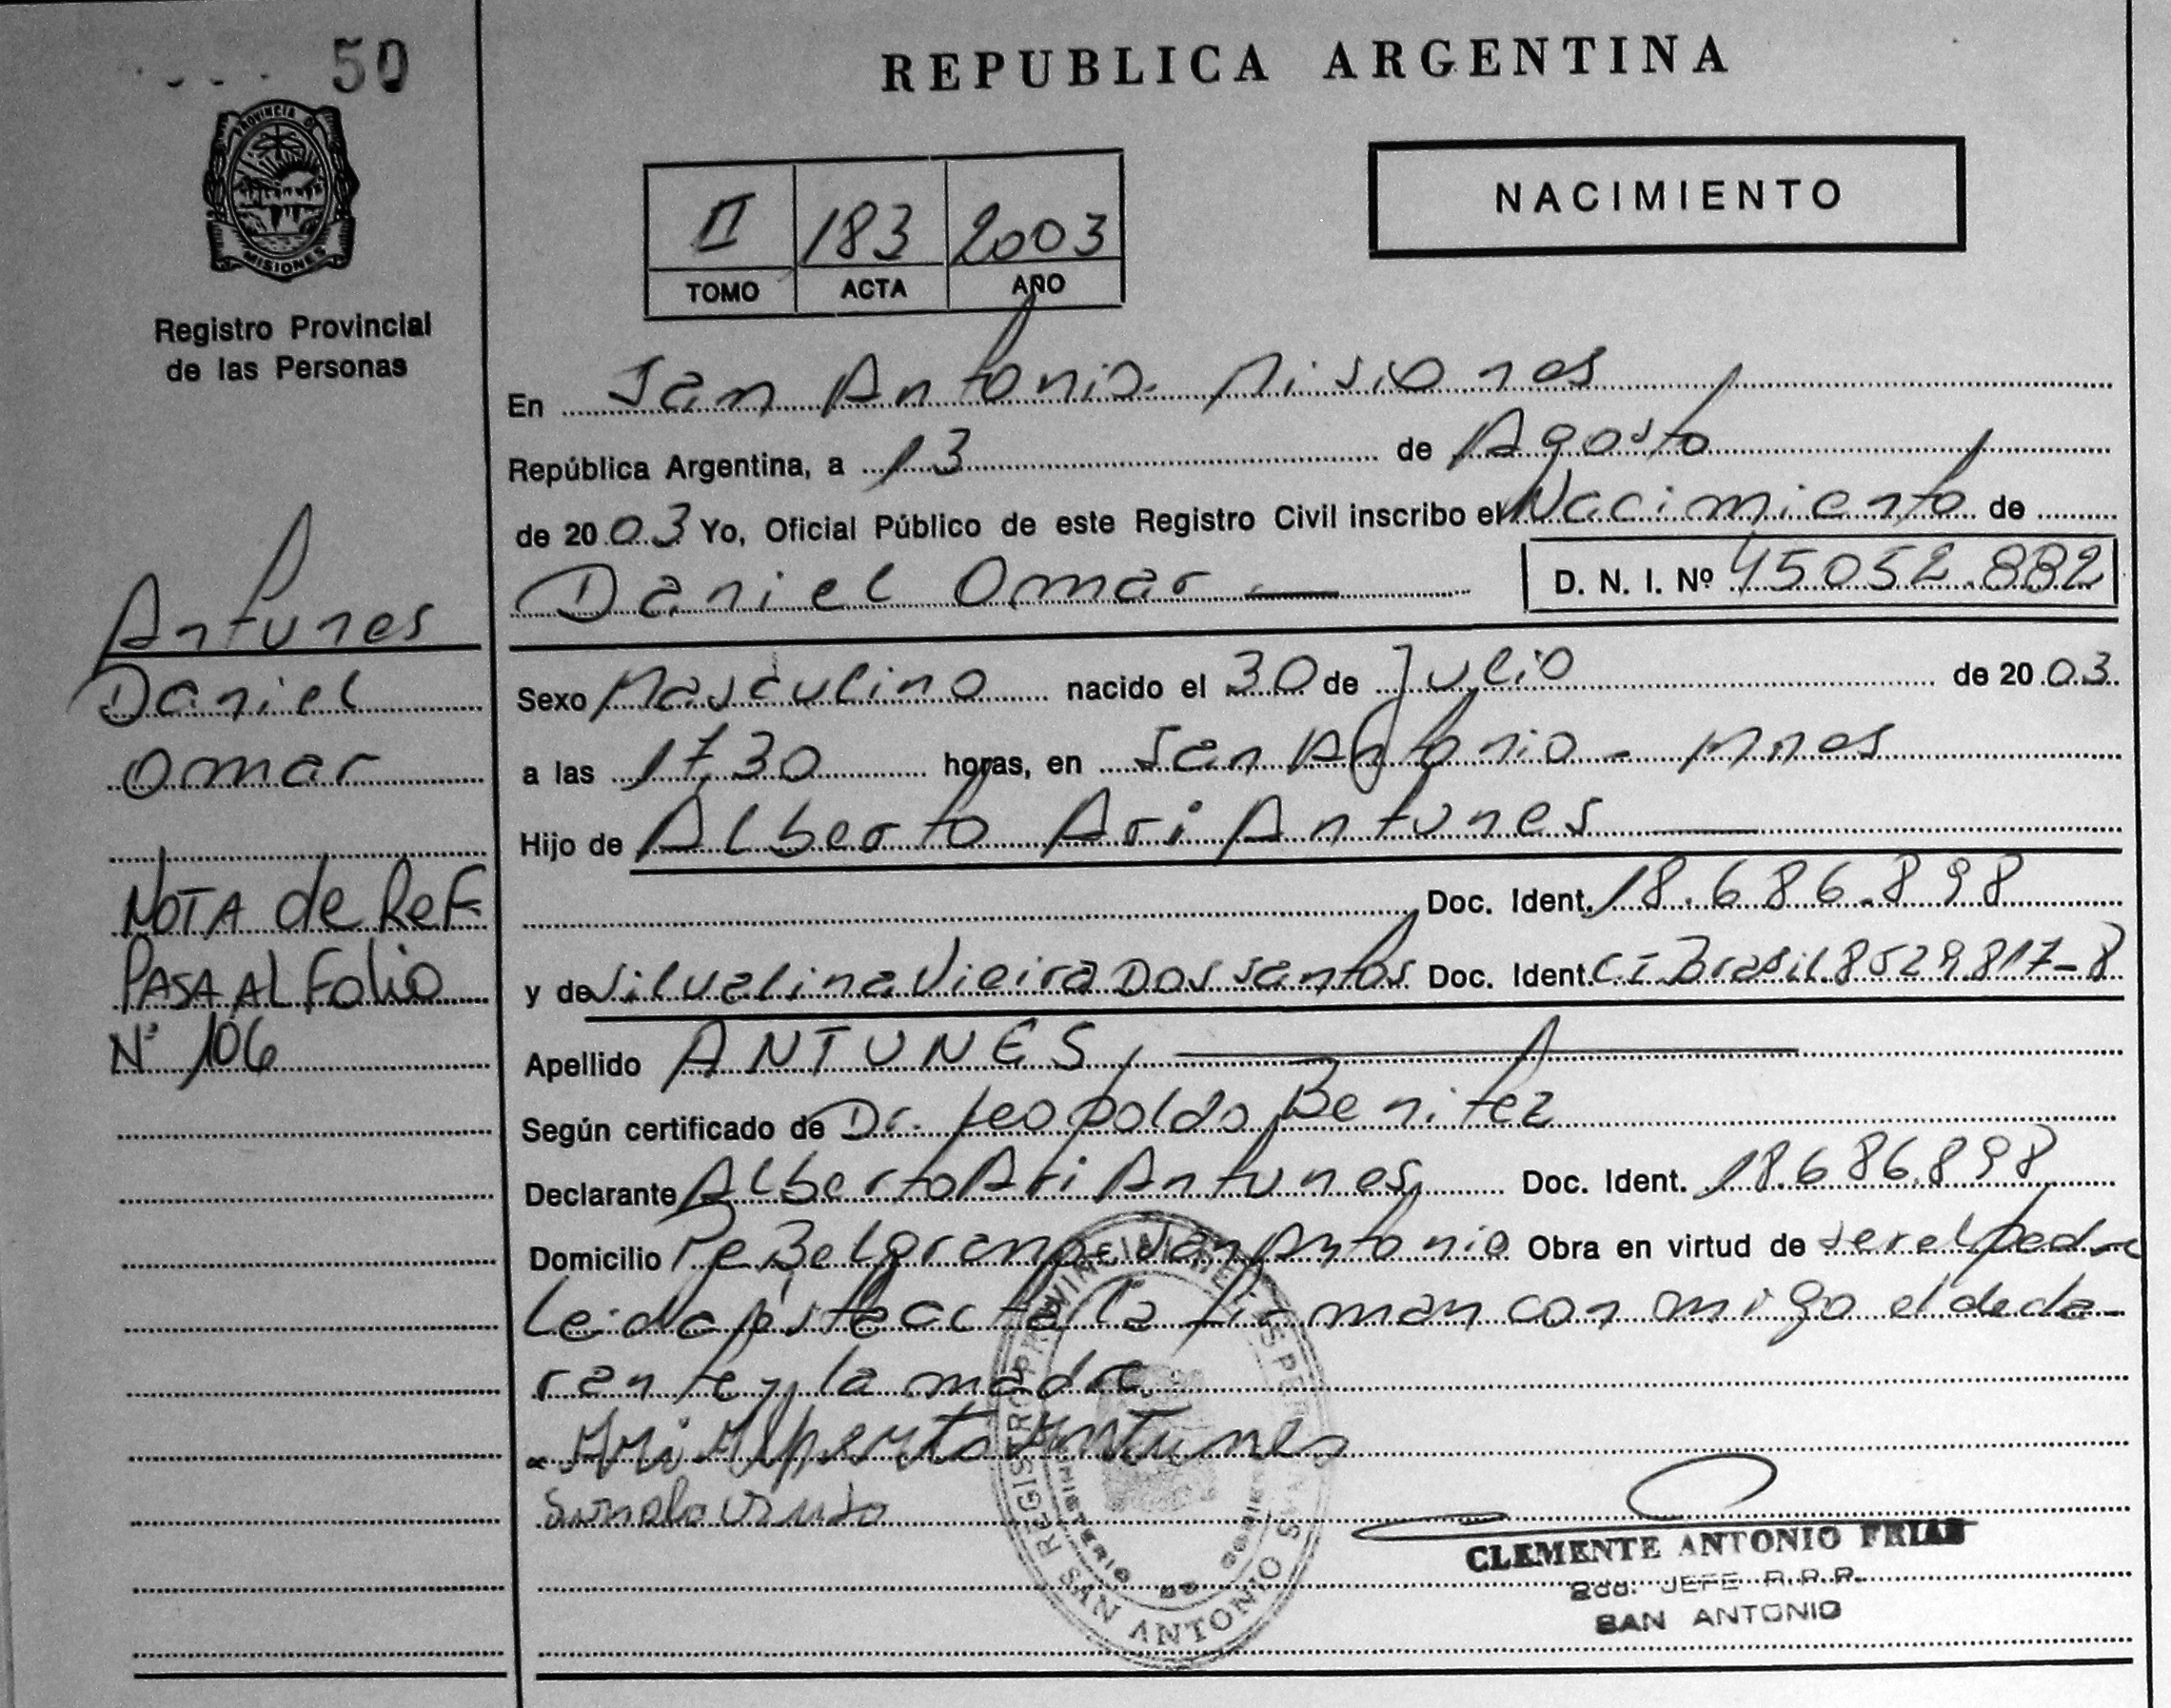 50
PROVINCIA DE
MISIONES
Registro Provincial
de las Personas
Antunes
Daniel
Omar
NOTA de ReF.
PASA AL Folio
N° 106
REPUBLICA ARGENTINA
II 183 2003
TOMO ACTA AÑO
NACIMIENTO
En San Antonio Misiones
República Argentina, a 13 de Agosto
de 2003 Yo, Oficial Público de este Registro Civil inscribo el Nacimiento de
Daniel Omar D. N. I. Nº 45052.882
Sexo Masculino nacido el 30 de Julio de 2003.
a las 17,30 horas, en San Antonio - Mnes
Hijo de Alberto Ari Antunes
Doc. Ident. 18.686.898
y de Silvalina Vieira Dos Santos Doc. Ident. CI Brasil 8529.817-8
Apellido ANTUNES,
Según certificado de Dr. Leopoldo Benitez
Declarante Alberto Ari Antunes Doc. Ident. 18.686.898
Domicilio Pje Belgrano San Antonio Obra en virtud de ser el padre
Leida esta acta la firman conmigo el decla-
rante y la madre
Ari Alberto Antunes
REGISTRO PROVINCIAL DE LAS PERSONAS
MINISTERIO DE GOBIERNO
SAN ANTONIO
CLEMENTE ANTONIO FRIAS
2do. JEFE R.P.P.
SAN ANTONIO